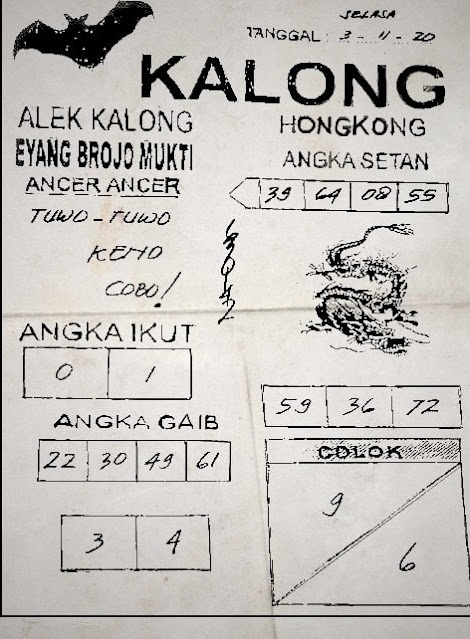 SELASA
TANGGAL : 3 - 11 - 20
KALONG
ALEK KALONG
HONGKONG
EYANG BROJO MUKTI
ANGKA SETAN
ANCER ANCER
39 64 08 55
TUWO - TUWO
KENO
COBO!
ANGKA IKUT
0 1
59 36 72
ANGKA GAIB
22 30 49 61
COLOK
9
6
3 4